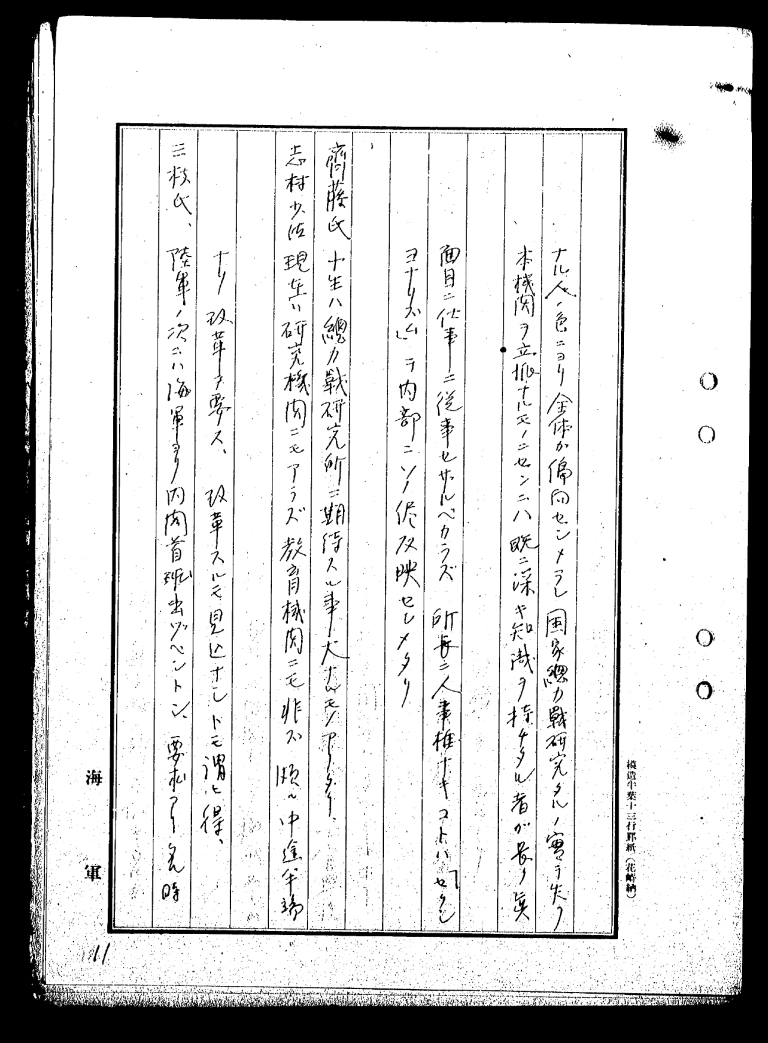 ナル人ノ色ニヨリ全体カ偏向センメラレ 国家總力戰研究タルノ實ヲ失フ
本機関ヲ立派ナルモノニセンニハ既ニ深キ知識ヲ持チタル者が長ク眞
面目ニ仕事ニ從事セザルベカラズ 所長ニ人事権ナキコトハ「セクシ
ヨナリズム」ヲ内部ニソノ侭反映センメタリ
齊藤氏 十年ハ總力戰研究所ニ期待スル事大ナルモノアリタリ、
志村少佐 現在ハ研究機関ニモアラズ教育機関ニモ非ズ 頗ル中途半端
ナリ 改革ヲ要ス、改革スルモ見込ナシトモ謂ヒ得、
三枝氏、 陸軍ノ次ニハ海軍ヨリ内閣首班出ヅベントン、要求アリタル時
海軍
模造半葉十三行罫紙(花崎納)
11